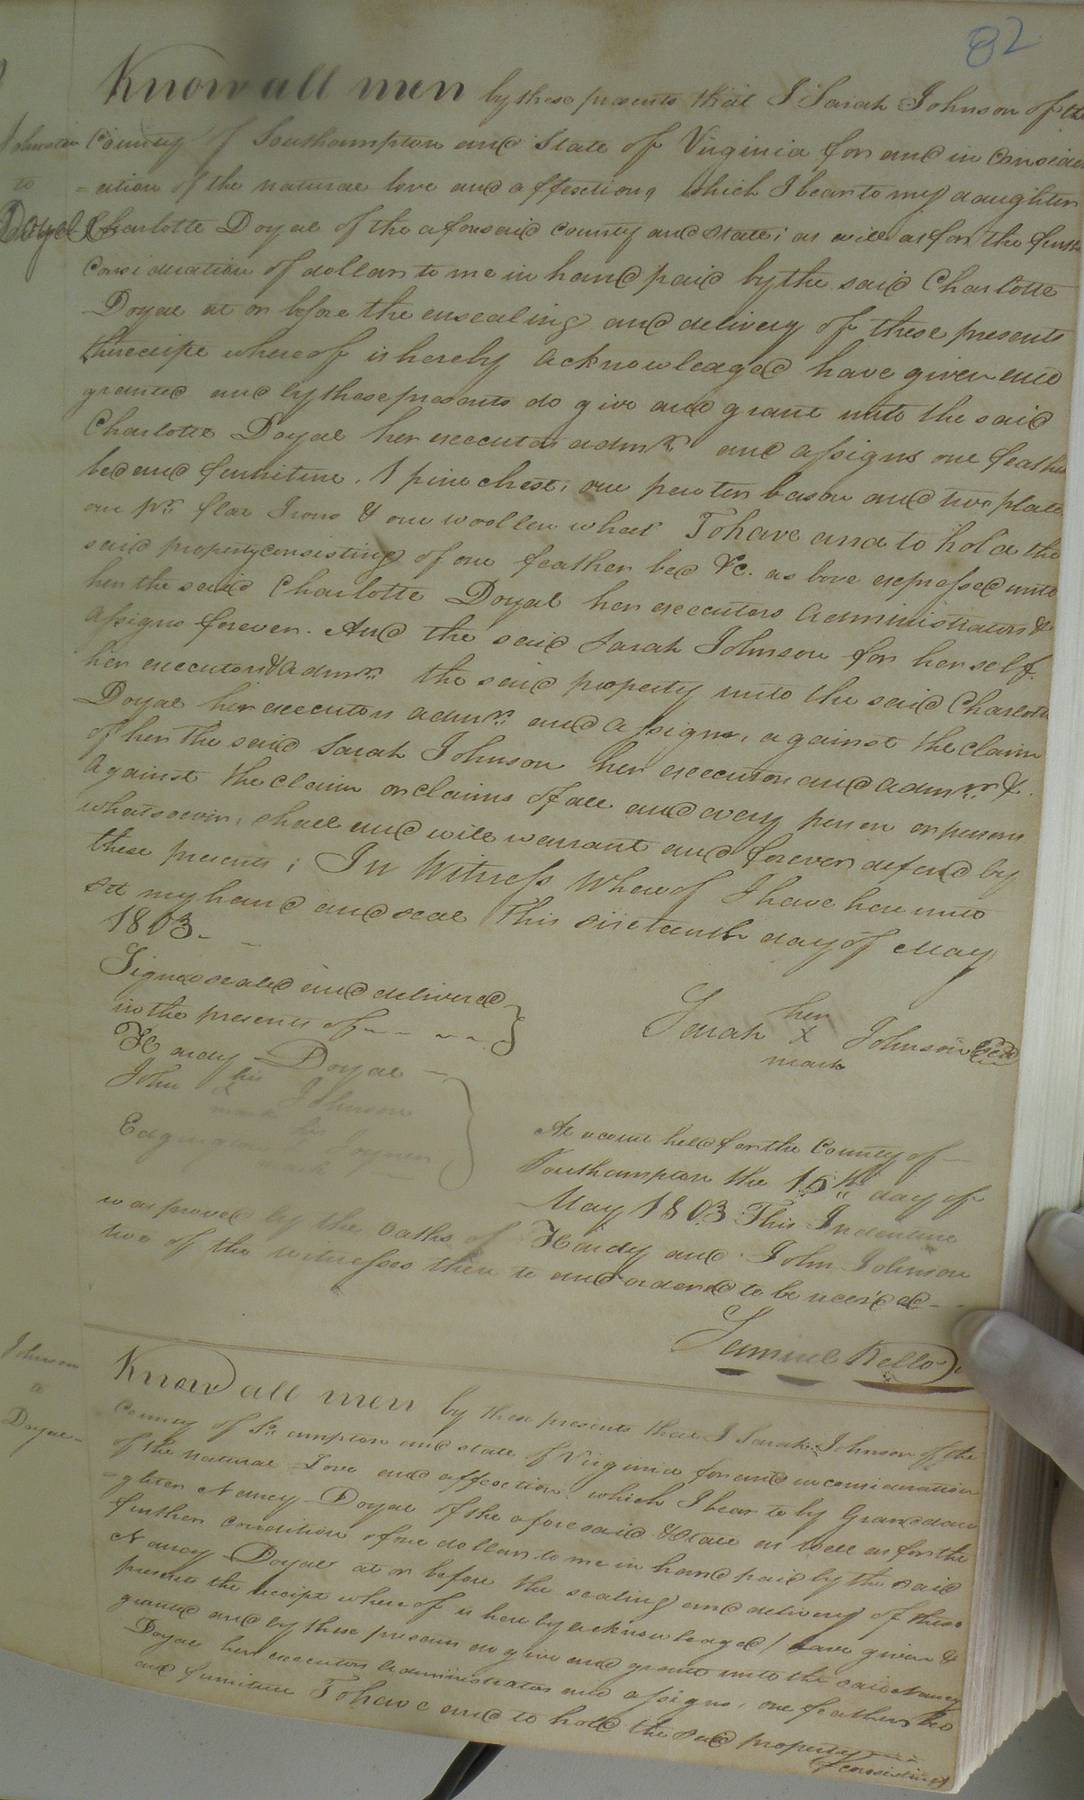 82
Know all men by these presents that I Sarah Johnson of the
Johnson
to
Doyel
County of Southampton and State of Virginia for and in consider
=ation of the natural love and affection, which I bear to my daughter
Charlotte Doyal of the aforesaid county and State; as well as for the further
Consideration of dollars to me in hand paid by the said Charlotte
Doyal at or before the ensealing and delivery of these presents
whereof is hereby acknowledged have given and
granted and by these presents do give and grant unto the said
Charlotte Doyal her executors admrs. and assigns one feather
bed and furniture, 1 pine chest, one pewter bason and two plate
one pr. flat Irons & one woollen wheel To have and to hold the
said property consisting of one feather bed &c. as bove expressed unto
her the said Charlotte Doyal her executors Administrators &
assigns forever. And the said Sarah Johnson for herself
her executors & admrs. the said property unto the said Charlotte
Doyal her executors admrs. and assigns, against the claim
of her the said Sarah Johnson her executors and admrs. &.
against the claim or claims of all and every person or persons
whatsoever, shall and will warrant and forever defend by
these presents; In Witness Whereof I have here unto
set my hand and seal this sixteenth day of May
1803.
Signed sealed and delivered
in the presents of
Hardy Doyal
John his x mark Johnson
his Joyner
mark
Sarah her X mark Johnson Seal
At a court held for the County of
Southampton the 16th day of
May 1803 This Indenture
was proved by the oaths of Hardy and John Johnson
two of the witnesses there to and ordered to be recorded
Samuel Kello
Johnson
to
Doyal
Know all men by these presents that I Sarah Johnson of the
County of Southampton and state of Virginia for and in consideration
of the natural Love and affection which I bear to by Grandaw
=ghter Nancy Doyal of the aforesaid & State as well as for the
further condition of one dollar to me in hand paid by the said
Nancy Doyal at or before the sealing and delivery of these
presents the receipt whereof is hereby acknowledged have given &
granted and by these presents do give and grant unto the said Nancy
Doyal her executors administrators and assigns, one feather bed
and furniture To have and to hold the said property
consisting